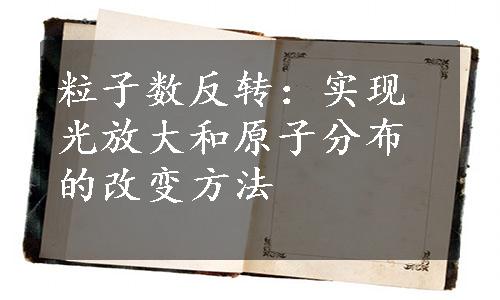 粒子数反转：实现
光放大和原子分布
的改变方法